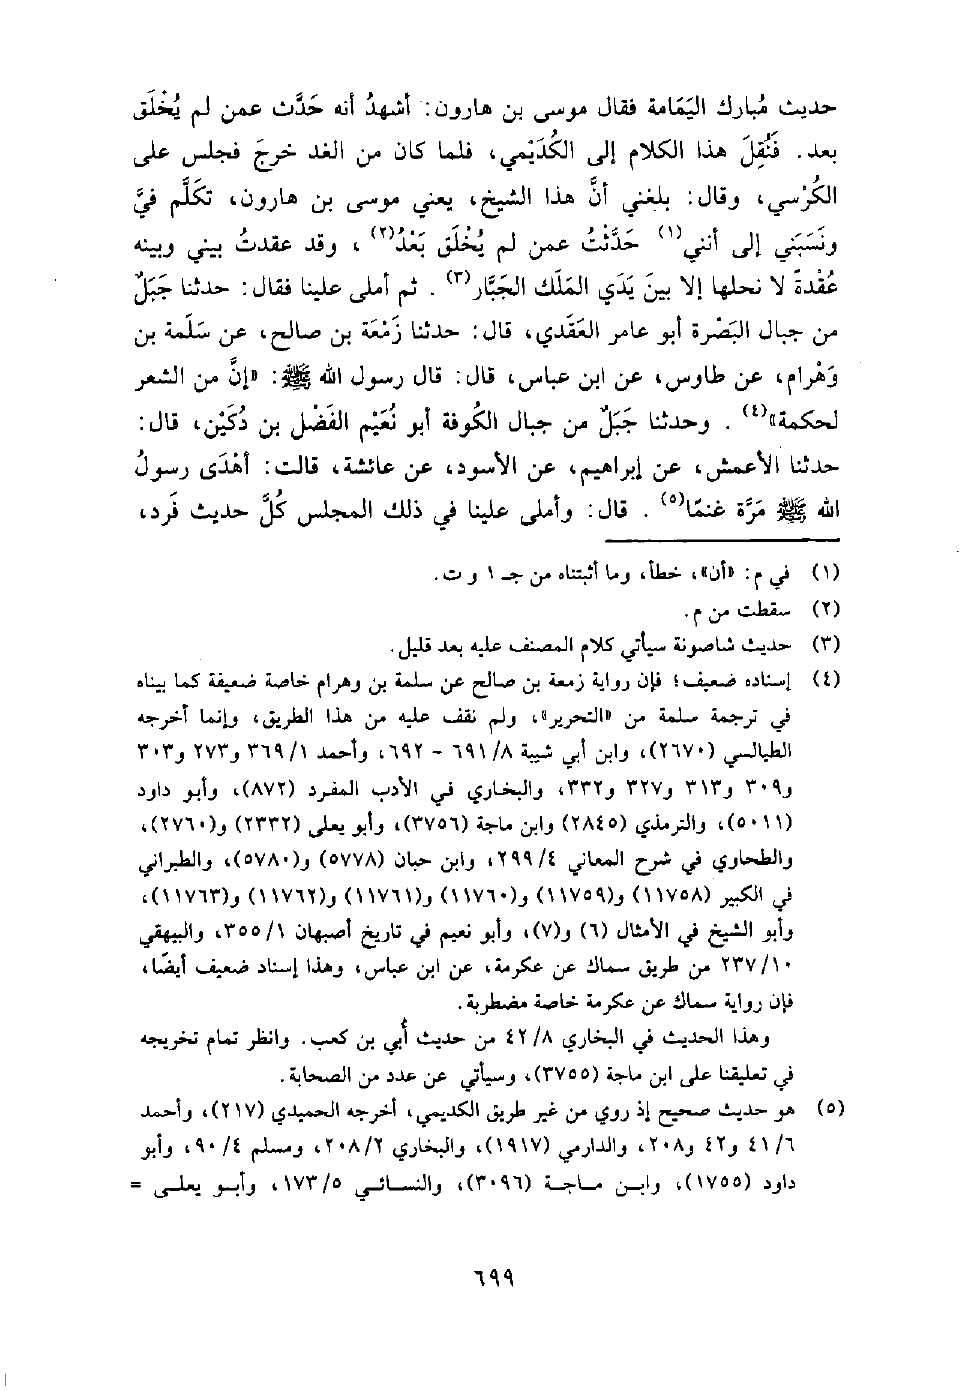 حديث مُبارك اليَمَامة فقال موسى بن هارون: أشهدُ أنه حَدَّث عمن لم يُخْلَق
بعد. فَنُقِلَ هذا الكلام إلى الكُدَيْمي، فلما كان من الغد خرجَ فجلس على
الكُرْسي، وقال: بلغني أنَّ هذا الشيخ، يعني موسى بن هارون، تكلَّم فيَّ
ونَسَبَني إلى أنني(١) حَدَّثْتُ عمن لم يُخْلَق بَعْدُ(٢)، وقد عقدتُ بيني وبينه
عُقْدةً لا نحلها إلا بينَ يَدَي المَلَك الجَبَّار(٣). ثم أملى علينا فقال: حدثنا جَبَلٌ
من جبال البَصْرة أبو عامر العَقَدي، قال: حدثنا زَمْعَة بن صالح، عن سَلَمة بن
وَهْرام، عن طاوس، عن ابن عباس، قال: قال رسول الله ﷺ: «إنَّ من الشعر
لحكمة»(٤). وحدثنا جَبَلٌ من جبال الكُوفة أبو نُعَيْم الفَضْل بن دُكَيْن، قال:
حدثنا الأعمش، عن إبراهيم، عن الأسود، عن عائشة، قالت: أهْدَى رسولُ
الله ﷺ مَرَّة غنمًا(٥). قال: وأملى علينا في ذلك المجلس كُلَّ حديث فَرد،
(١) في م: «أن»، خطأ، وما أثبتناه من جـ ١ و ت.
(٢) سقطت من م.
(٣) حديث شاصونة سيأتي كلام المصنف عليه بعد قليل.
(٤) إسناده ضعيف؛ فإن رواية زمعة بن صالح عن سلمة بن وهرام خاصة ضعيفة كما بيناه
في ترجمة سلمة من «التحرير»، ولم نقف عليه من هذا الطريق، وإنما أخرجه
الطيالسي (٢٦٧٠)، وابن أبي شيبة ٨/ ٦٩١ - ٦٩٢، وأحمد ١/ ٣٦٩ و٢٧٣ و٣٠٣
و٣٠٩ و٣١٣ و٣٢٧ و٣٣٢، والبخاري في الأدب المفرد (٨٧٢)، وأبو داود
(٥٠١١)، والترمذي (٢٨٤٥) وابن ماجة (٣٧٥٦)، وأبو يعلى (٢٣٣٢) و(٢٧٦٠)،
والطحاوي في شرح المعاني ٤/ ٢٩٩، وابن حبان (٥٧٧٨) و(٥٧٨٠)، والطبراني
في الكبير (١١٧٥٨) و(١١٧٥٩) و(١١٧٦٠) و(١١٧٦١) و(١١٧٦٢) و(١١٧٦٣)،
وأبو الشيخ في الأمثال (٦) و(٧)، وأبو نعيم في تاريخ أصبهان ١/ ٣٥٥، والبيهقي
١٠/ ٢٣٧ من طريق سماك عن عكرمة، عن ابن عباس، وهذا إسناد ضعيف أيضًا،
فإن رواية سماك عن عكرمة خاصة مضطربة.
وهذا الحديث في البخاري ٨/ ٤٢ من حديث أُبي بن كعب. وانظر تمام تخريجه
في تعليقنا على ابن ماجة (٣٧٥٥)، وسيأتي عن عدد من الصحابة.
(٥) هو حديث صحيح إذ روي من غير طريق الكديمي، أخرجه الحميدي (٢١٧)، وأحمد
٦/ ٤١ و٤٢ و٢٠٨، والدارمي (١٩١٧)، والبخاري ٢/ ٢٠٨، ومسلم ٤/ ٩٠، وأبو
داود (١٧٥٥)، وابن ماجة (٣٠٩٦)، والنسائي ٥/ ١٧٣، وأبو يعلى =
٦٩٩